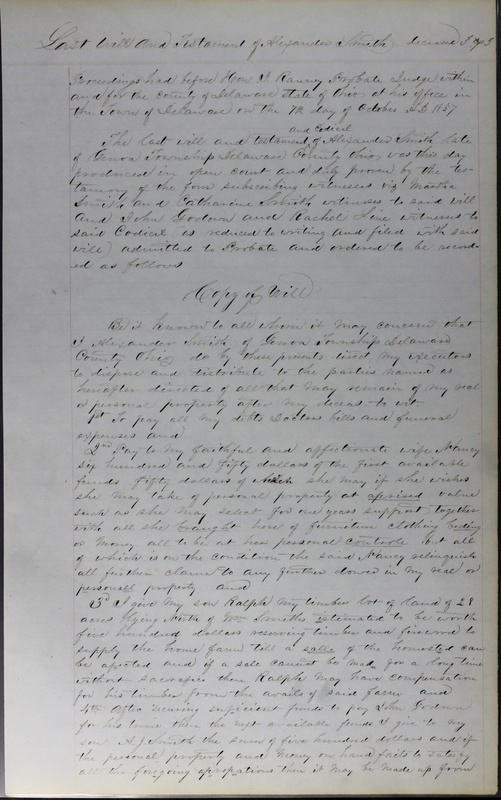 Last Will and Testament of Alexander Smith deceased
Proceedings had before Hon J Ranney Probate Judge within
and for the County of Delaware State of Ohio at his office in
the Town of Delaware on the 7th day of October AD 1857
and Codicil
The last will and testament of Alexander Smith late
of Genoa Township Delaware County Ohio was this day
produced in open court and duly proven by the tes-
tamony of the four subscribing witnesses viz Martha
Smith and Catharine Smith witnesses to said will
and John Godown and Rachel witnesses to
said Codicil (as reduced to writing and filed with said
will) admitted to Probate and ordered to be record-
ed as follows
Copy of Will
Be it known to all whom it may concern that
I Alexander Smith of Genoa Township Delaware
County Ohio do by these presents direct my executors
to dispose and distribute to the parties named as
herafter directed of all that may remain of my real
or personal property after my deceas to wit
1st To pay all my debts Doctors bills and funeral
expenses and
2nd Pay to my faithful and affectionate wife Nancy
six hundred and fifty dollars of the first available
funds fifty dollars of which she may if she wishes
she may take of personal property at aprised value
such as she may select for one years support together
with all she braught here of furniture clothing beding
or money all to be at her personal controle but all
of which is on the condition the said Nancy relinquish
all further claim to any further dower in my real or
personall property and
3d I give my son Ralph my timber lot of land of 28
acres lying North of Wm Smiths estemated to be worth
five hundred dollars reserving timber and firewood to
supply the home farm till a salle of the homested can
be afected and if a sale cannot be made for a long time
without sacrafice then Ralph may have compensation
for his timber from the avails of said farm and
4th After securing suficient funds to pay John Godown
for his the next available funds I give to my
son A J Smith the sum of five hundred dollars and if
the personal property and money on hand fails to satisfy
all the foregoing apropations then it may be made up from